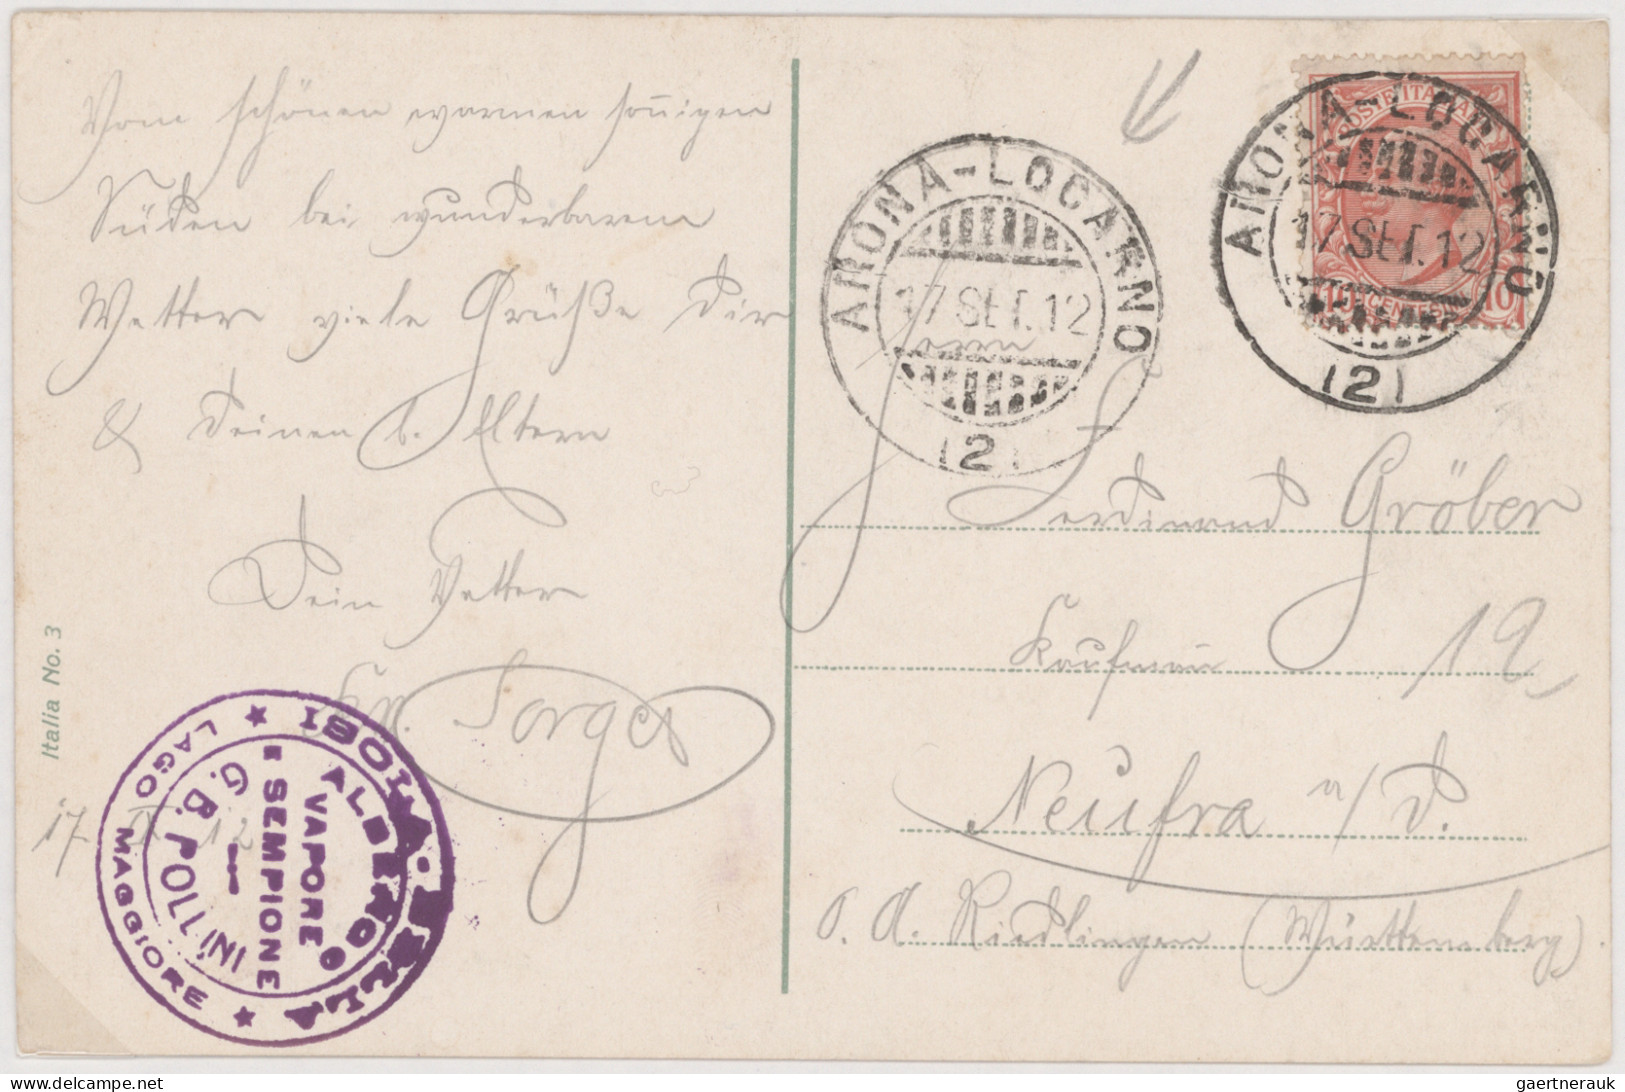 Vom schönen warmen sonnigen
Süden bei wunderbarem
Wetter viele Grüße Dir
& Deinen l. Eltern
Dein Vetter
Sorger
17. IX. 12
Italia No. 3
ISOLA-BELLA
LAGO MAGGIORE
ALBERGO
VAPORE
SEMPIONE
G. B. POLLINI
ARONA-LOCARNO
17 SET. 12
(2)
POSTE ITALIANE
ARONA-LOCARNO
17 SET. 12
10 CENTESIMI 10
(2)
Herrn
Ferdinand Gröber
Kaufmann 12
Neufra a/D.
O. A. Riedlingen (Württemberg)
delcampe.net
gaertnerauk